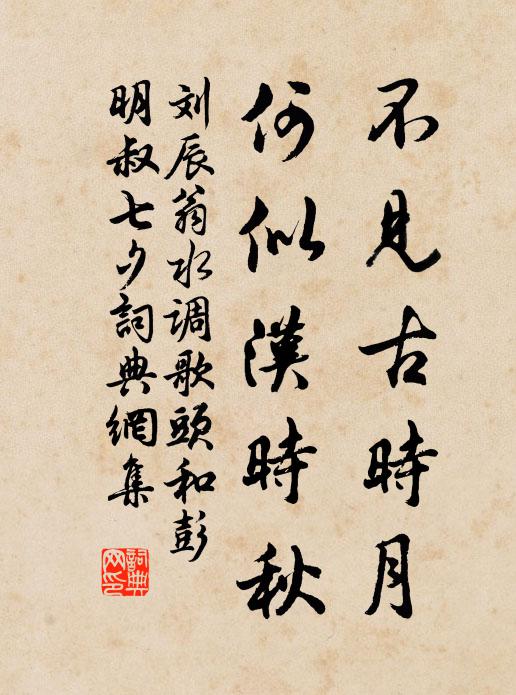 不見古時月
何似漢時秋
刘辰翁水调歌頭和彭
明叔七夕詞典網集
詞典网印